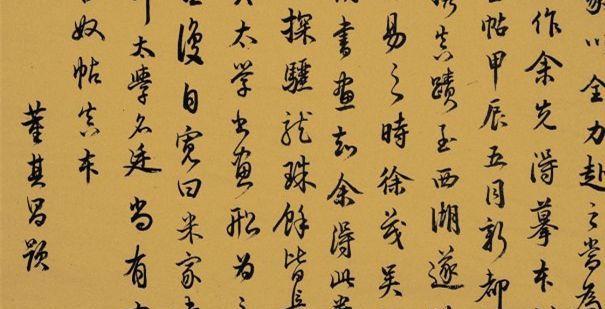 以全力赴之當為
作余先得摹本
帖甲辰五月新都
真蹟至西湖遂
易之時徐茂吳
書畫知余得此
探驪龍珠餘皆長
太學書畫船為
復自寬曰米家
太學名廷尚有
奴帖真本
董其昌題